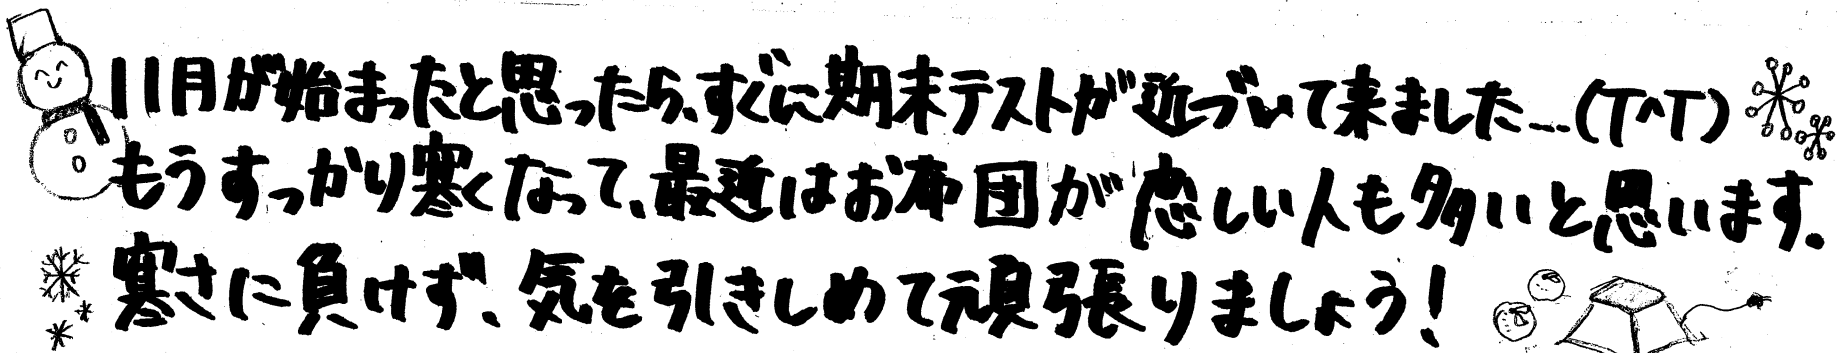 11月が始まったと思ったら、すぐに期末テストが近づいて来ました...(T^T)
もうすっかり寒くなって、最近はお布団が恋しい人も多いと思います。
寒さに負けず、気を引きしめて頑張りましょう!